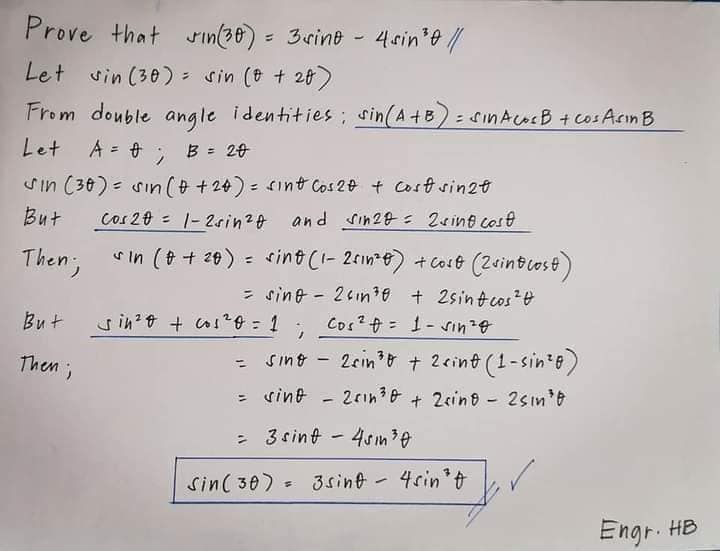 Prove that sin(3θ) = 3sinθ - 4sin³θ //
Let sin(3θ) = sin(θ + 2θ)
From double angle identities ; sin(A+B) = sinAcosB + cosAsinB
Let A = θ ; B = 2θ
sin(3θ) = sin(θ + 2θ) = sinθ cos2θ + cosθ sin2θ
But cos2θ = 1 - 2sin²θ and sin2θ = 2sinθ cosθ
Then; sin(θ + 2θ) = sinθ(1 - 2sin²θ) + cosθ(2sinθcosθ)
= sinθ - 2sin³θ + 2sinθcos²θ
But sin²θ + cos²θ = 1 ; cos²θ = 1 - sin²θ
Then; = sinθ - 2sin³θ + 2sinθ(1 - sin²θ)
= sinθ - 2sin³θ + 2sinθ - 2sin³θ
= 3sinθ - 4sin³θ
sin(3θ) = 3sinθ - 4sin³θ // ✓
Engr. HB